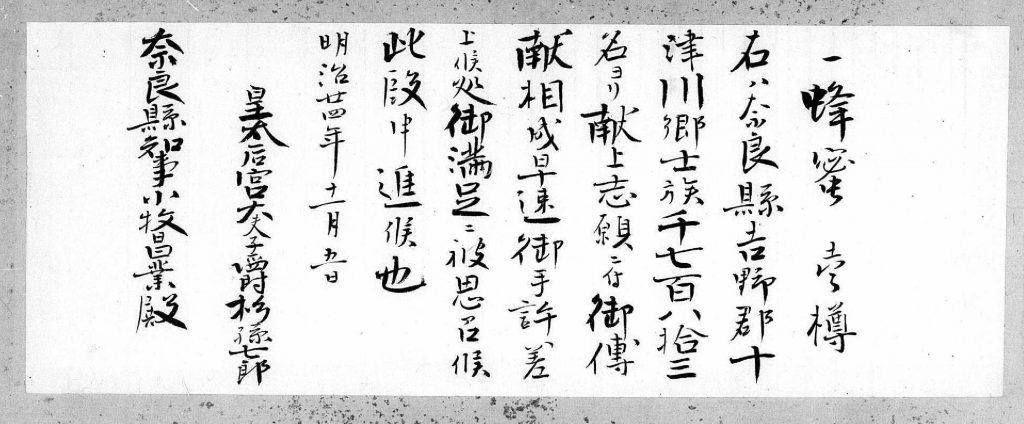 一蜂蜜　壱樽
右ハ奈良縣吉野郡十
津川郷士族千七百八拾三
名ヨリ献上志願ニ付御傳
献相成早速御手許差
上候処御満足ニ被思召候
此段申進候也
明治廿四年十一月五日
皇太后宮大夫子爵杉孫七郎
奈良縣知事小牧昌業殿